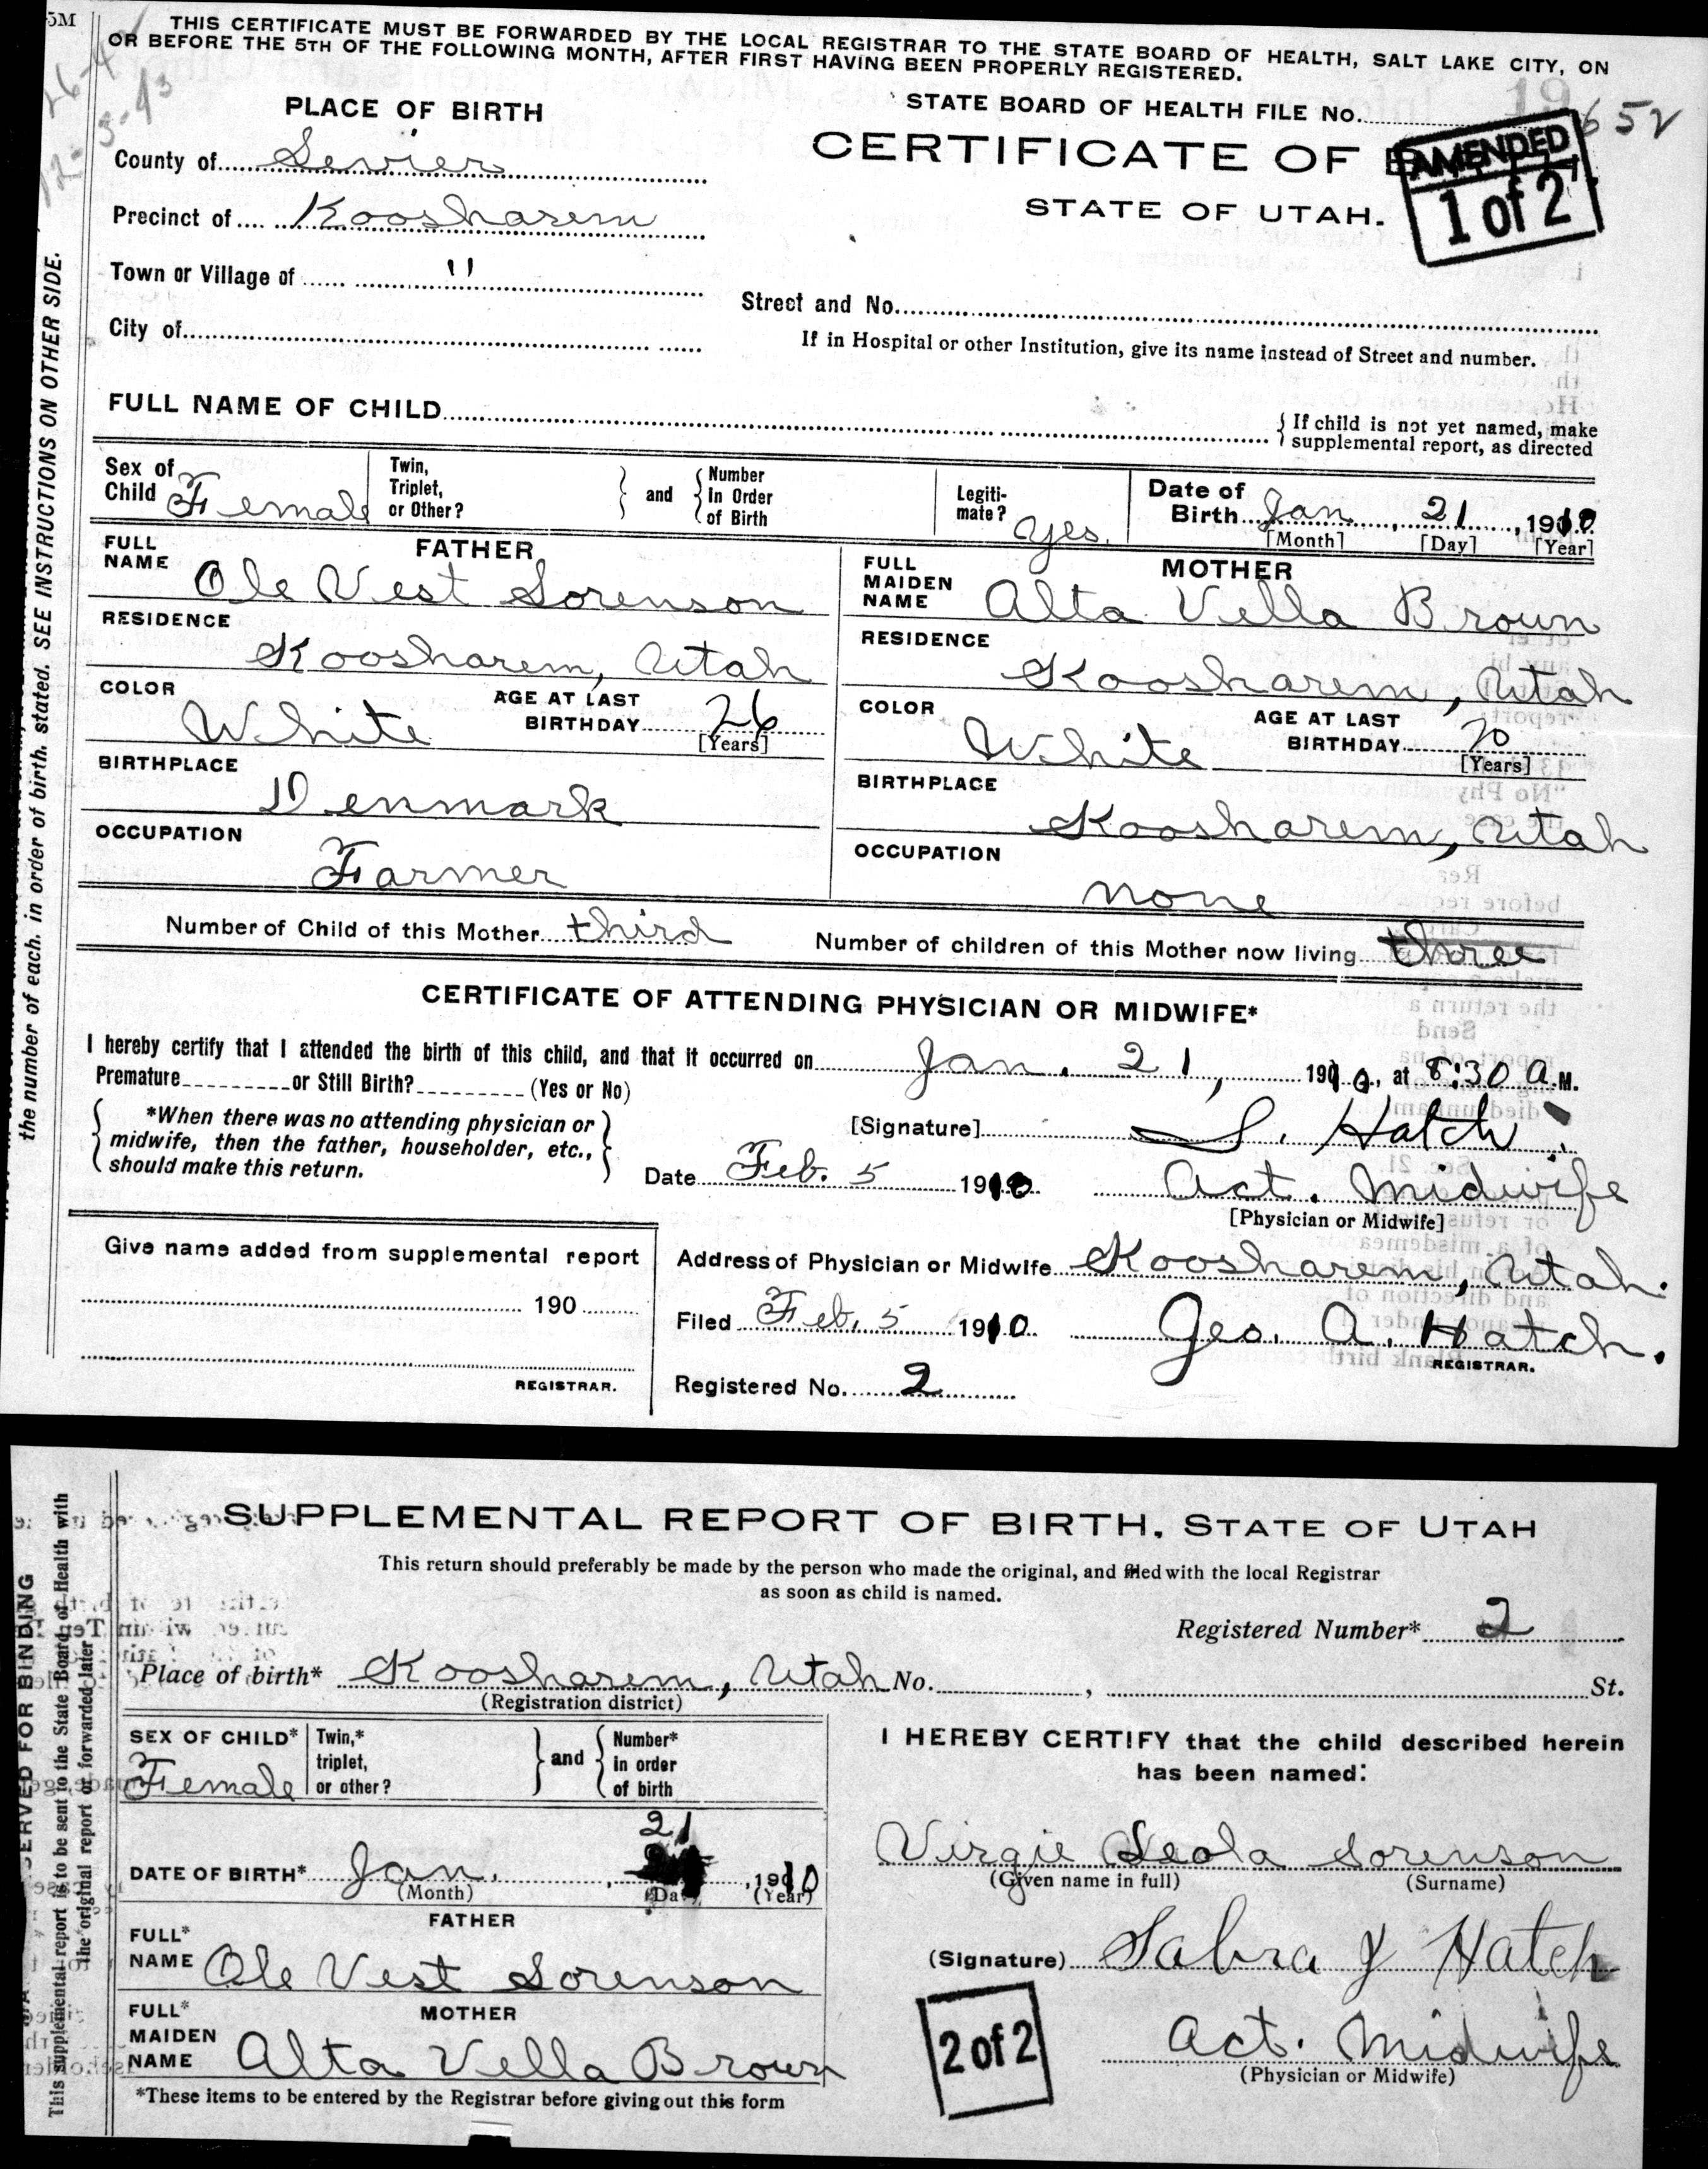 5M
THIS CERTIFICATE MUST BE FORWARDED BY THE LOCAL REGISTRAR TO THE STATE BOARD OF HEALTH, SALT LAKE CITY, ON
OR BEFORE THE 5TH OF THE FOLLOWING MONTH, AFTER FIRST HAVING BEEN PROPERLY REGISTERED.
PLACE OF BIRTH
STATE BOARD OF HEALTH FILE No. 652
County of Sevier
CERTIFICATE OF
AMENDED
1 of 2
Precinct of Koosharem
STATE OF UTAH.
Town or Village of "
Street and No.
City of
If in Hospital or other Institution, give its name instead of Street and number.
FULL NAME OF CHILD
{ If child is not yet named, make
supplemental report, as directed
Sex of Child Female
Twin, Triplet, or Other?
} and { Number In Order of Birth
Legiti-mate? yes.
Date of Birth Jan. 21, 1910
[Month] [Day] [Year]
FATHER
FULL NAME Ole Vest Sorenson
MOTHER
FULL MAIDEN NAME Alta Vella Brown
RESIDENCE Koosharem, Utah
RESIDENCE Koosharem, Utah
COLOR White AGE AT LAST BIRTHDAY 26 [Years]
COLOR White AGE AT LAST BIRTHDAY 20 [Years]
BIRTHPLACE Denmark
BIRTHPLACE Koosharem, Utah
OCCUPATION Farmer
OCCUPATION none
Number of Child of this Mother third Number of children of this Mother now living three
CERTIFICATE OF ATTENDING PHYSICIAN OR MIDWIFE*
I hereby certify that I attended the birth of this child, and that it occurred on Jan. 21, 1910, at 8:30 A.M.
Premature or Still Birth? (Yes or No)
{ *When there was no attending physician or
midwife, then the father, householder, etc.,
should make this return. }
[Signature] S. Hatch
Date Feb. 5 1910 Act. Midwife
[Physician or Midwife]
Give name added from supplemental report
190
REGISTRAR.
Address of Physician or Midwife Koosharem, Utah.
Filed Feb. 5 1910 Geo. A. Hatch.
REGISTRAR.
Registered No. 2
the number of each, in order of birth, stated. SEE INSTRUCTIONS ON OTHER SIDE.
SUPPLEMENTAL REPORT OF BIRTH, STATE OF UTAH
This return should preferably be made by the person who made the original, and filed with the local Registrar
as soon as child is named.
Registered Number* 2
Place of birth* Koosharem, Utah No. , St.
(Registration district)
SEX OF CHILD* Female
Twin,* triplet, or other?
} and { Number* in order of birth
I HEREBY CERTIFY that the child described herein
has been named:
21
DATE OF BIRTH* Jan. , 1910
(Month) (Day) (Year)
Virgie Leola Sorenson
(Given name in full) (Surname)
FATHER
FULL* NAME Ole Vest Sorenson
(Signature) Sabra J Hatch
MOTHER
FULL* MAIDEN NAME Alta Vella Brown
2 of 2
Act. Midwife
(Physician or Midwife)
*These items to be entered by the Registrar before giving out this form
SERVED FOR BINDING
This supplemental report is to be sent to the State Board of Health with
the original report or forwarded later